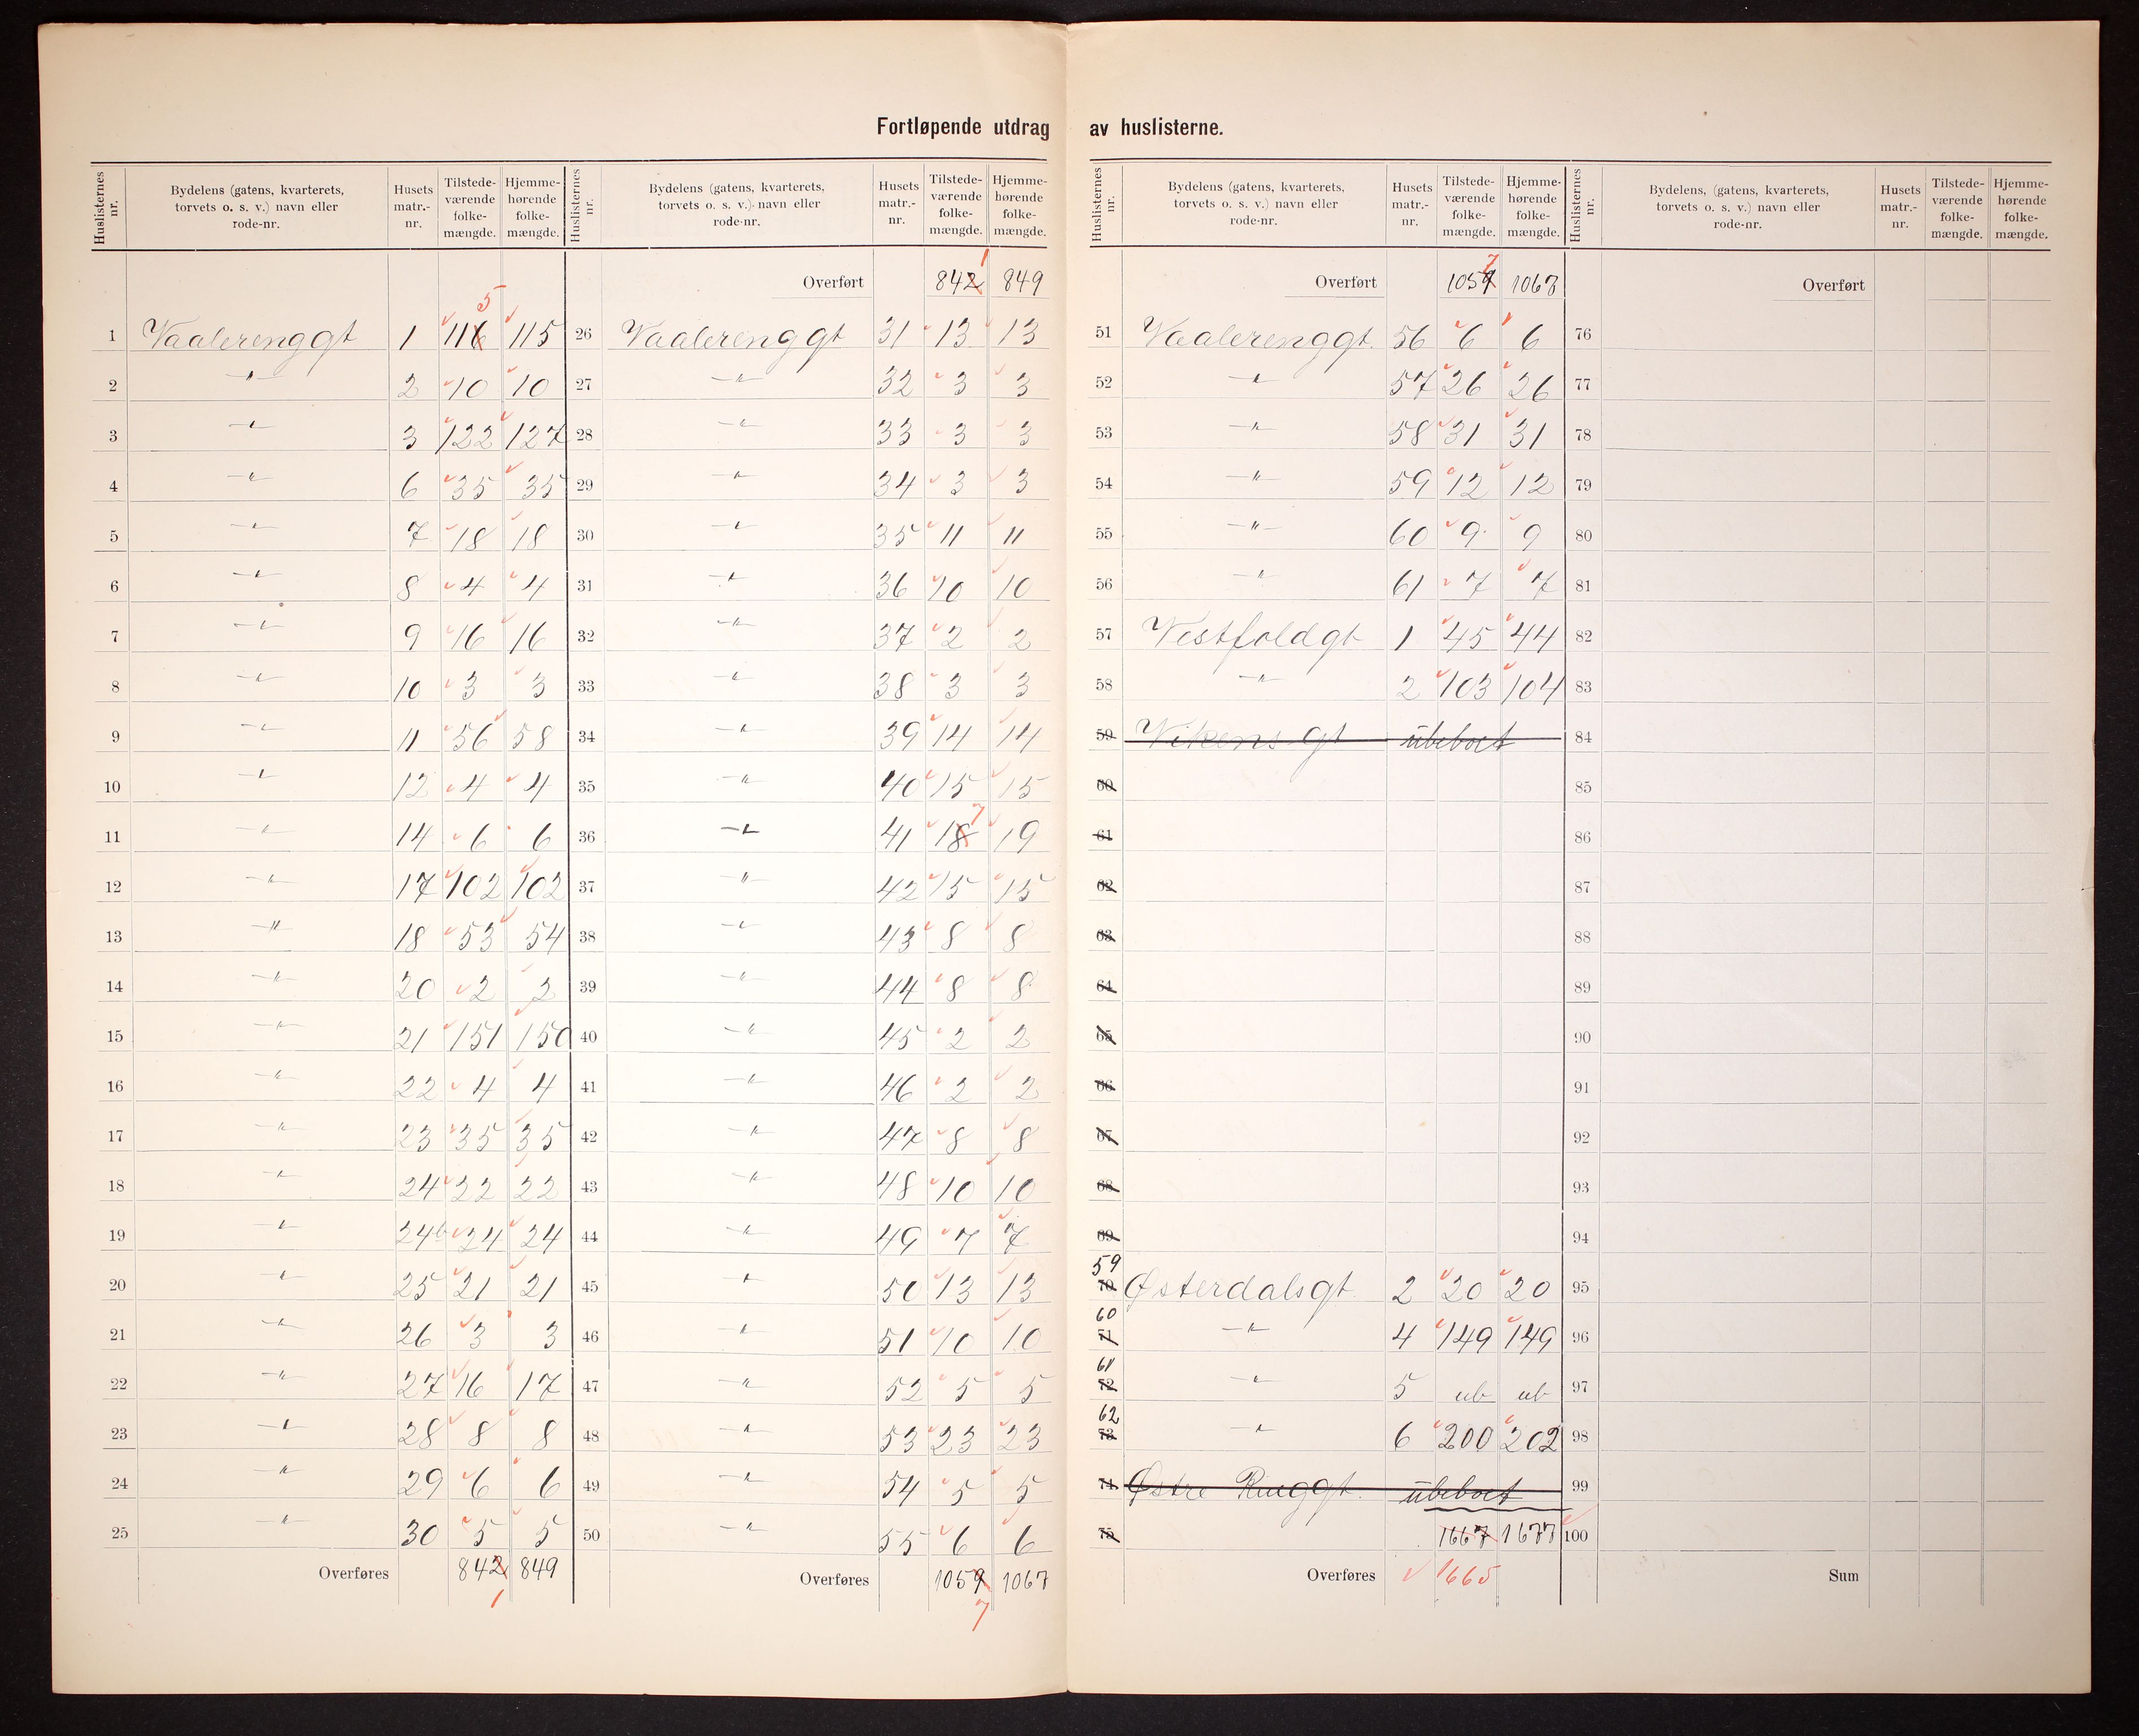 Fortløpende utdrag av huslisterne.
Huslisternes nr. | Bydelens (gatens, kvarterets, torvets o. s. v.) navn eller rode-nr. | Husets matr.-nr. | Tilstedeværende folkemængde. | Hjemmehørende folkemængde.
1 Vaalerenggt 1 116 5 115
2 -"- 2 10 10
3 -"- 3 122 127
4 -"- 6 35 35
5 -"- 7 18 18
6 -"- 8 4 4
7 -"- 9 16 16
8 -"- 10 3 3
9 -"- 11 56 58
10 -"- 12 4 4
11 -"- 14 6 6
12 -"- 17 102 102
13 -"- 18 53 54
14 -"- 20 2 2
15 -"- 21 151 150
16 -"- 22 4 4
17 -"- 23 35 35
18 -"- 24 22 22
19 -"- 24b 24 24
20 -"- 25 21 21
21 -"- 26 3 3
22 -"- 27 16 17
23 -"- 28 8 8
24 -"- 29 6 6
25 -"- 30 5 5
Overføres 842 1 849
Huslisternes nr. | Bydelens (gatens, kvarterets, torvets o. s. v.) navn eller rode-nr. | Husets matr.-nr. | Tilstedeværende folkemængde. | Hjemmehørende folkemængde.
Overført 842 1 849
26 Vaalerenggt 31 13 13
27 -"- 32 3 3
28 -"- 33 3 3
29 -"- 34 3 3
30 -"- 35 11 11
31 -"- 36 10 10
32 -"- 37 2 2
33 -"- 38 3 3
34 -"- 39 14 14
35 -"- 40 15 15
36 -"- 41 18 7 19
37 -"- 42 15 15
38 -"- 43 8 8
39 -"- 44 8 8
40 -"- 45 2 2
41 -"- 46 2 2
42 -"- 47 8 8
43 -"- 48 10 10
44 -"- 49 7 7
45 -"- 50 13 13
46 -"- 51 10 10
47 -"- 52 5 5
48 -"- 53 23 23
49 -"- 54 5 5
50 -"- 55 6 6
Overføres 1059 7 1067
Huslisternes nr. | Bydelens (gatens, kvarterets, torvets o. s. v.) navn eller rode-nr. | Husets matr.-nr. | Tilstedeværende folkemængde. | Hjemmehørende folkemængde.
Overført 1059 7 1067
51 Vaalerenggt. 56 6 6
52 -"- 57 26 26
53 -"- 58 31 31
54 -"- 59 12 12
55 -"- 60 9 9
56 -"- 61 7 7
57 Vestfoldgt 1 45 44
58 -"- 2 103 104
59 Vikens gt ubeboet
60
61
62
63
64
65
66
67
68
69
59 70 Østerdalsgt 2 20 20
60 71 -"- 4 149 149
61 72 -"- 5 ub ub
62 73 -"- 6 200 202
74 Østre Ringgt. ubeboet
75 1667 1677
Overføres 1665
Huslisternes nr. | Bydelens, (gatens, kvarterets, torvets o. s. v.) navn eller rode-nr. | Husets matr.-nr. | Tilstedeværende folkemængde. | Hjemmehørende folkemængde.
Overført
76
77
78
79
80
81
82
83
84
85
86
87
88
89
90
91
92
93
94
95
96
97
98
99
100
Sum